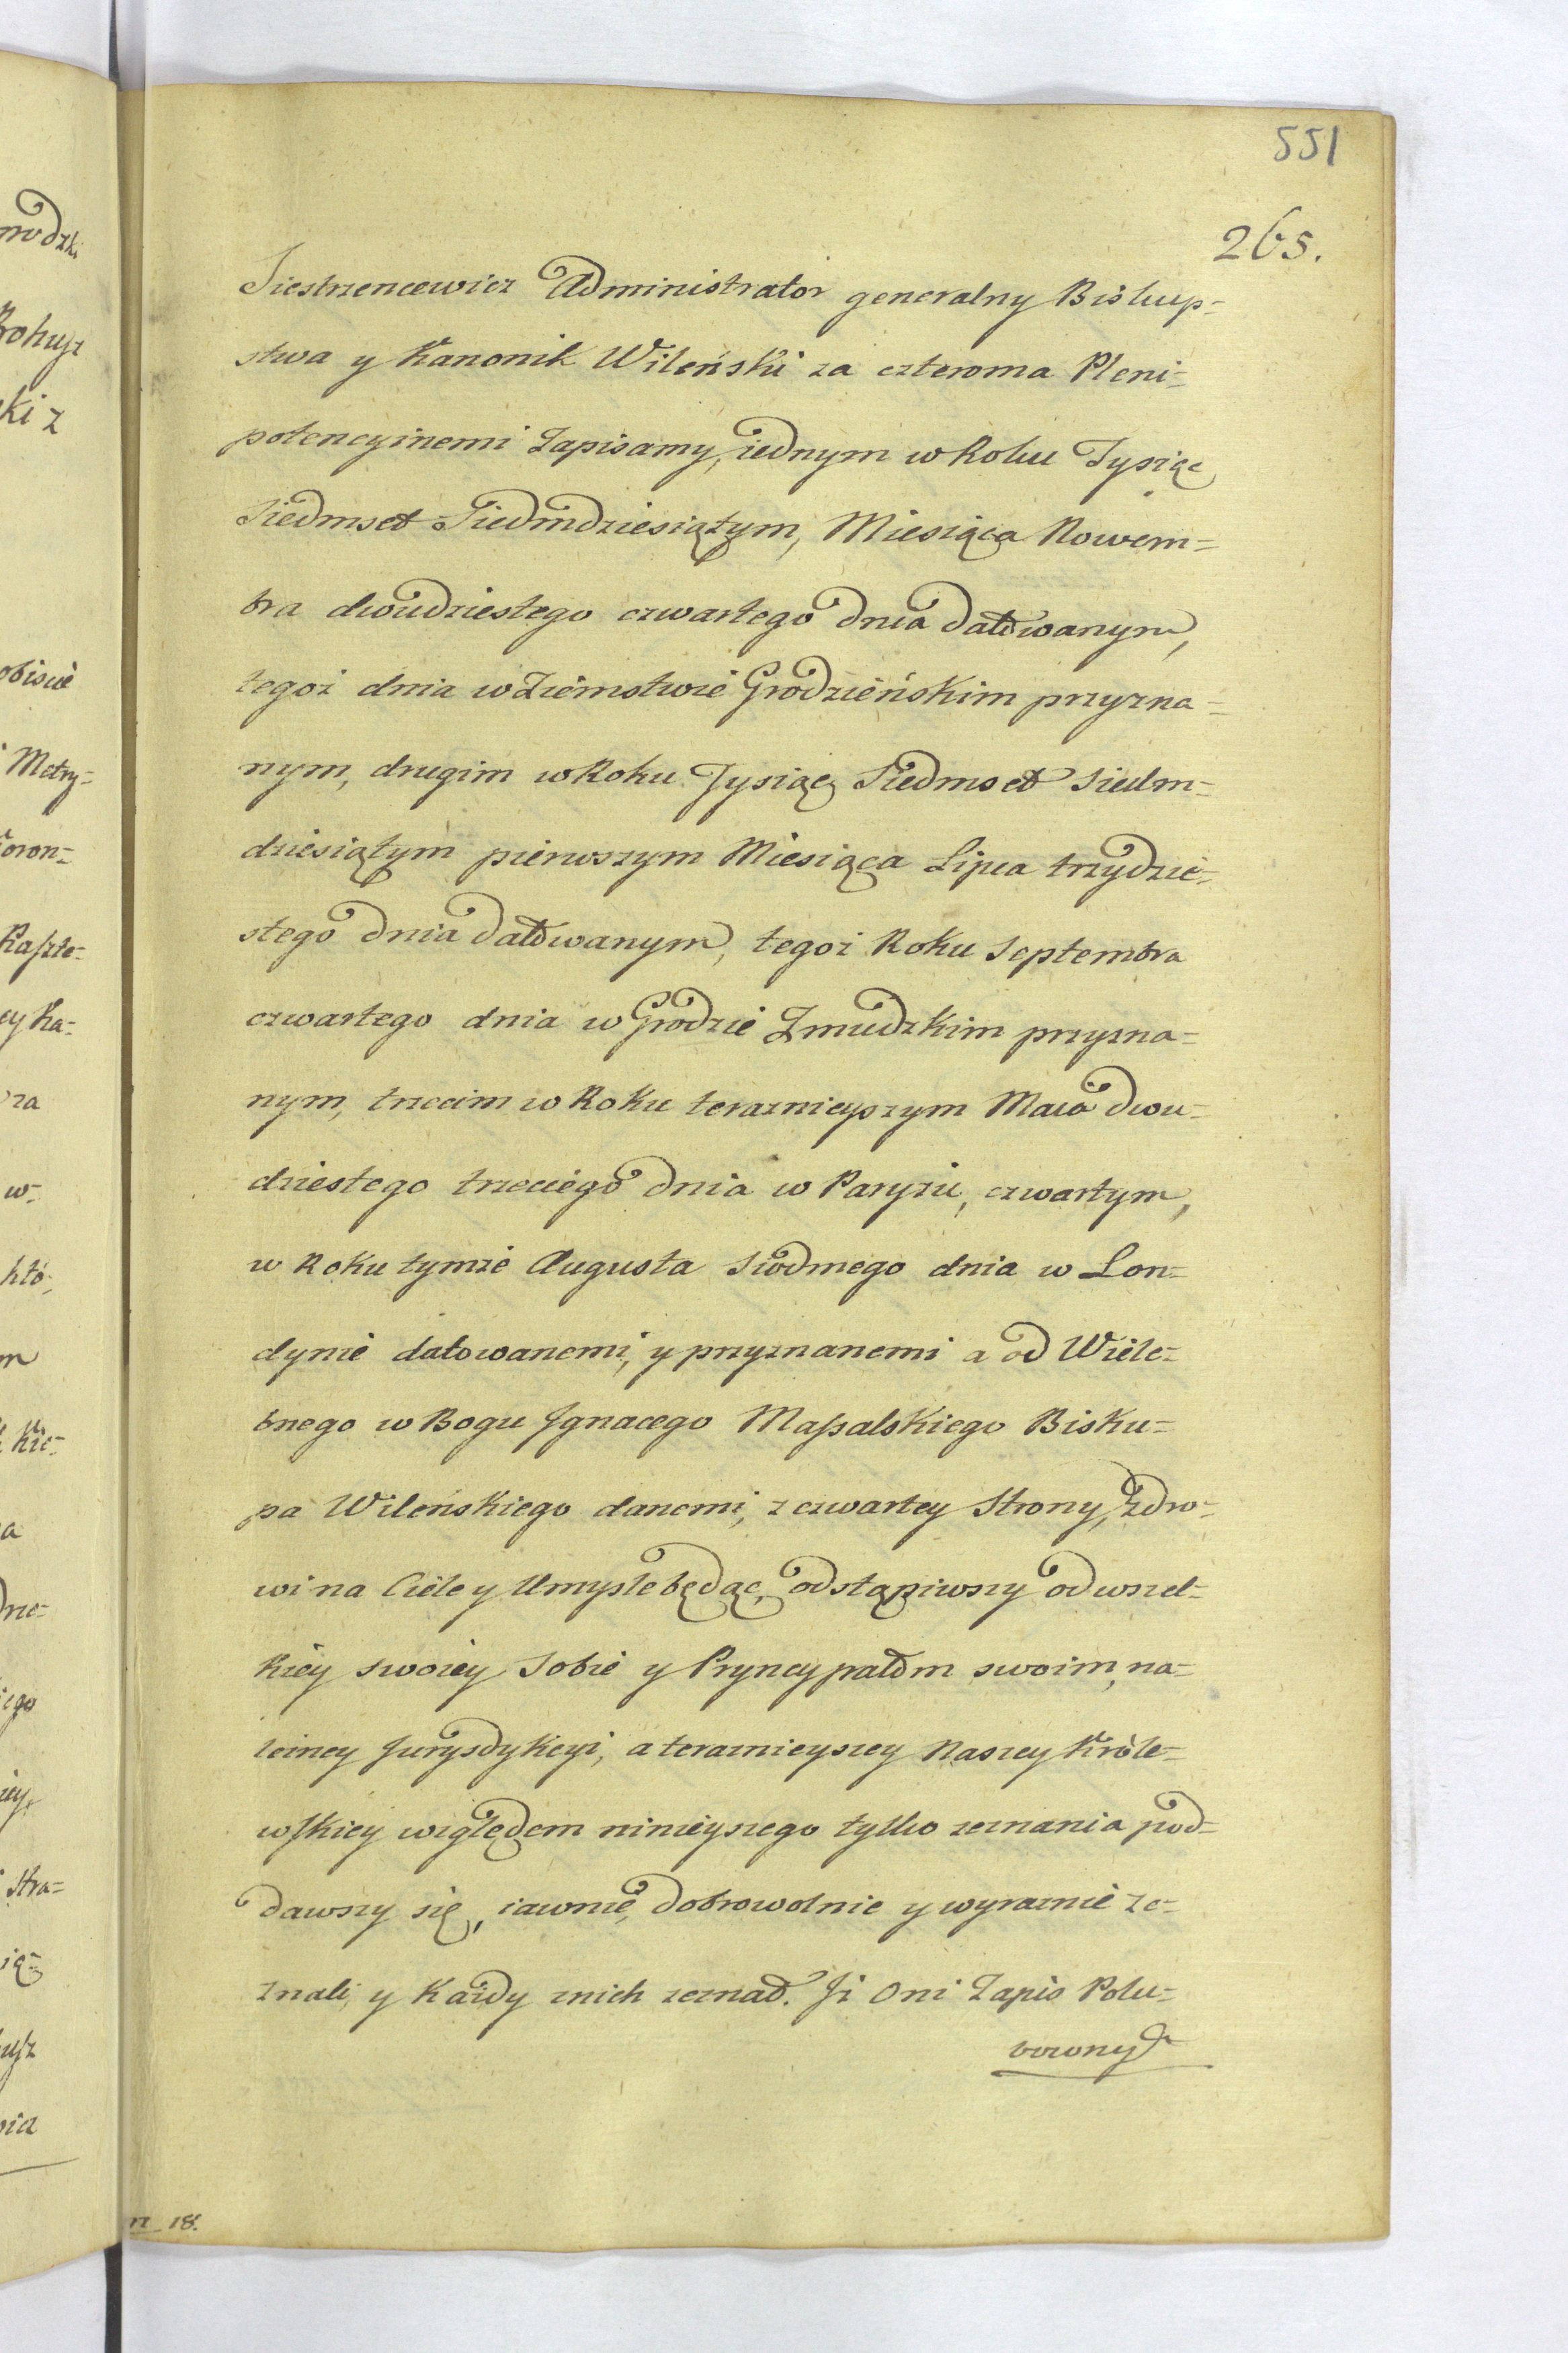 551
265.
Siestrzencewicz Administrator generalny Biskup=
stwa y Kanonik Wileński za czteroma Pleni=
potencyinemi Zapisamy, iednym w Roku Tysiąc
Siedmset Siedmdziesiątym, Miesiąca Nowem=
bra dwudziestego czwartego dnia datowanym,
tegoż dnia w Ziemstwie Grodzieńskim przyzna=
nym, drugim w Roku Tysiąc Siedmset Siedm=
dziesiątym pierwszym Miesiąca Lipca trzydzie=
stego dnia datowanym, tegoż Roku Septembra
czwartego dnia w Grodzie Zmudzkim przyzna=
nym, trzecim w Roku teraznieyszym Maia dwu=
dziestego trzeciego dnia w Paryżu, czwartym,
w Roku tymże Augusta siodmego dnia w Lon=
dynie datowanemi, y przyznanemi a od Wiele=
bnego w Bogu Jgnacego Maſsalskiego Bisku=
pa Wileńskiego danemi, z czwartey Strony, Zdro=
wi na Ciele y Umysle będąc, odstąpiwszy od wszel=
kiey swoiey Sobie y Pryncypałom swoim, na=
leżney Jurysdykcyi, a teraznieyszey Naszey Króle=
wſkiey względem ninieyszego tylko zeznania pod=
dawszy się, iawnie, dobrowolnie y wyraznie ze=
znali, y Każdy z nich zeznał. Jż Oni Zapis Polu=
bowny
modzki
Rohusz
ki z
obiscie
Metry=
Koron=
Kaſzte=
ey Ka=
za
w=
któ=
m
Kie=
a
iego
iey,
Stra=
ią=
uſz
nia
18.